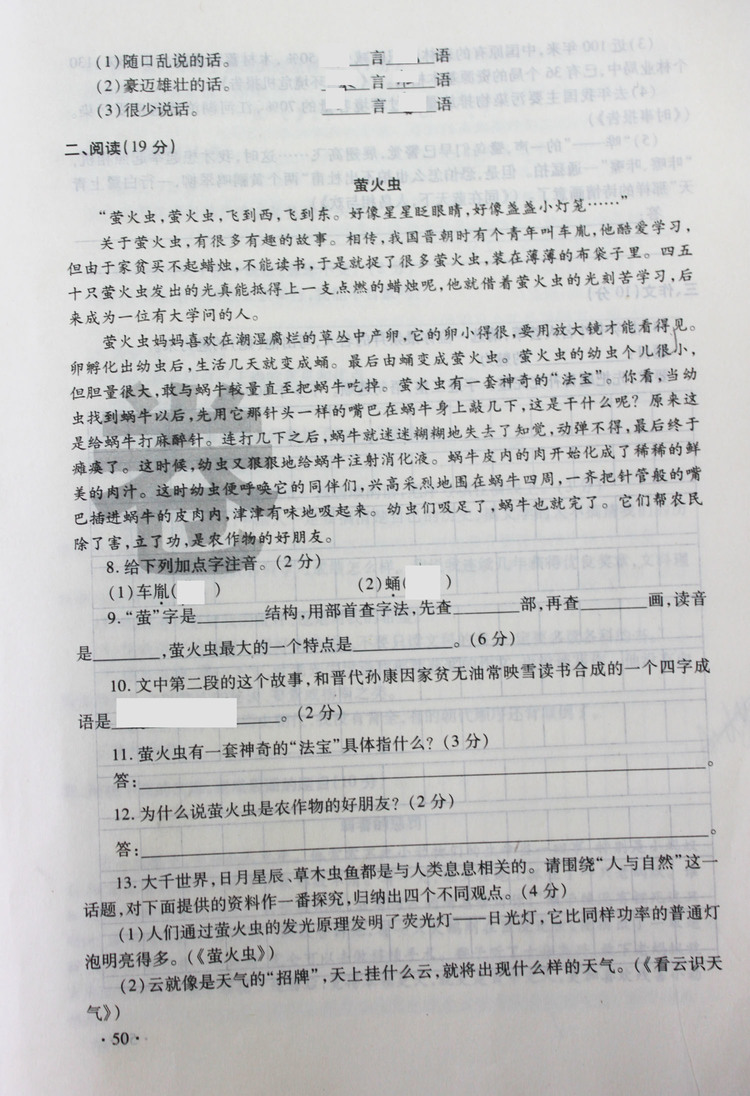 (1)随口乱说的话。 ____言____语
(2)豪迈雄壮的话。 ____言____语
(3)很少说话。 ____言____语
二、阅读(19分)
萤火虫
“萤火虫,萤火虫,飞到西,飞到东。好像星星眨眼睛,好像盏盏小灯笼……”
关于萤火虫,有很多有趣的故事。相传,我国晋朝时有个青年叫车胤,他酷爱学习,
但由于家贫买不起蜡烛,不能读书,于是就捉了很多萤火虫,装在薄薄的布袋子里。四五
十只萤火虫发出的光真能抵得上一支点燃的蜡烛呢,他就借着萤火虫的光刻苦学习,后
来成为一位有大学问的人。
萤火虫妈妈喜欢在潮湿腐烂的草丛中产卵,它的卵小得很,要用放大镜才能看得见。
卵孵化出幼虫后,生活几天就变成蛹。最后由蛹变成萤火虫。萤火虫的幼虫个儿很小,
但胆量很大,敢与蜗牛较量直至把蜗牛吃掉。萤火虫有一套神奇的“法宝”。你看,当幼
虫找到蜗牛以后,先用它那针头一样的嘴巴在蜗牛身上敲几下,这是干什么呢?原来这
是给蜗牛打麻醉针。连打几下之后,蜗牛就迷迷糊糊地失去了知觉,动弹不得,最后终于
瘫痪了。这时候,幼虫又狠狠地给蜗牛注射消化液。蜗牛皮内的肉开始化成了稀稀的鲜
美的肉汁。这时幼虫便呼唤它的同伴们,兴高采烈地围在蜗牛四周,一齐把针管般的嘴
巴插进蜗牛的皮肉内,津津有味地吸起来。幼虫们吸足了,蜗牛也就完了。它们帮农民
除了害,立了功,是农作物的好朋友。
8.给下列加点字注音。(2分)
(1)车胤( ) (2)蛹( )
9.“萤”字是______结构,用部首查字法,先查______部,再查______画,读音
是______,萤火虫最大的一个特点是________。(6分)
10.文中第二段的这个故事,和晋代孙康因家贫无油常映雪读书合成的一个四字成
语是________。(2分)
11.萤火虫有一套神奇的“法宝”具体指什么?(3分)
答:________。
12.为什么说萤火虫是农作物的好朋友?(2分)
答:________。
13.大千世界,日月星辰、草木虫鱼都是与人类息息相关的。请围绕“人与自然”这一
话题,对下面提供的资料作一番探究,归纳出四个不同观点。(4分)
(1)人们通过萤火虫的发光原理发明了荧光灯——日光灯,它比同样功率的普通灯
泡明亮得多。(《萤火虫》)
(2)云就像是天气的“招牌”,天上挂什么云,就将出现什么样的天气。(《看云识天
气》)
·50·